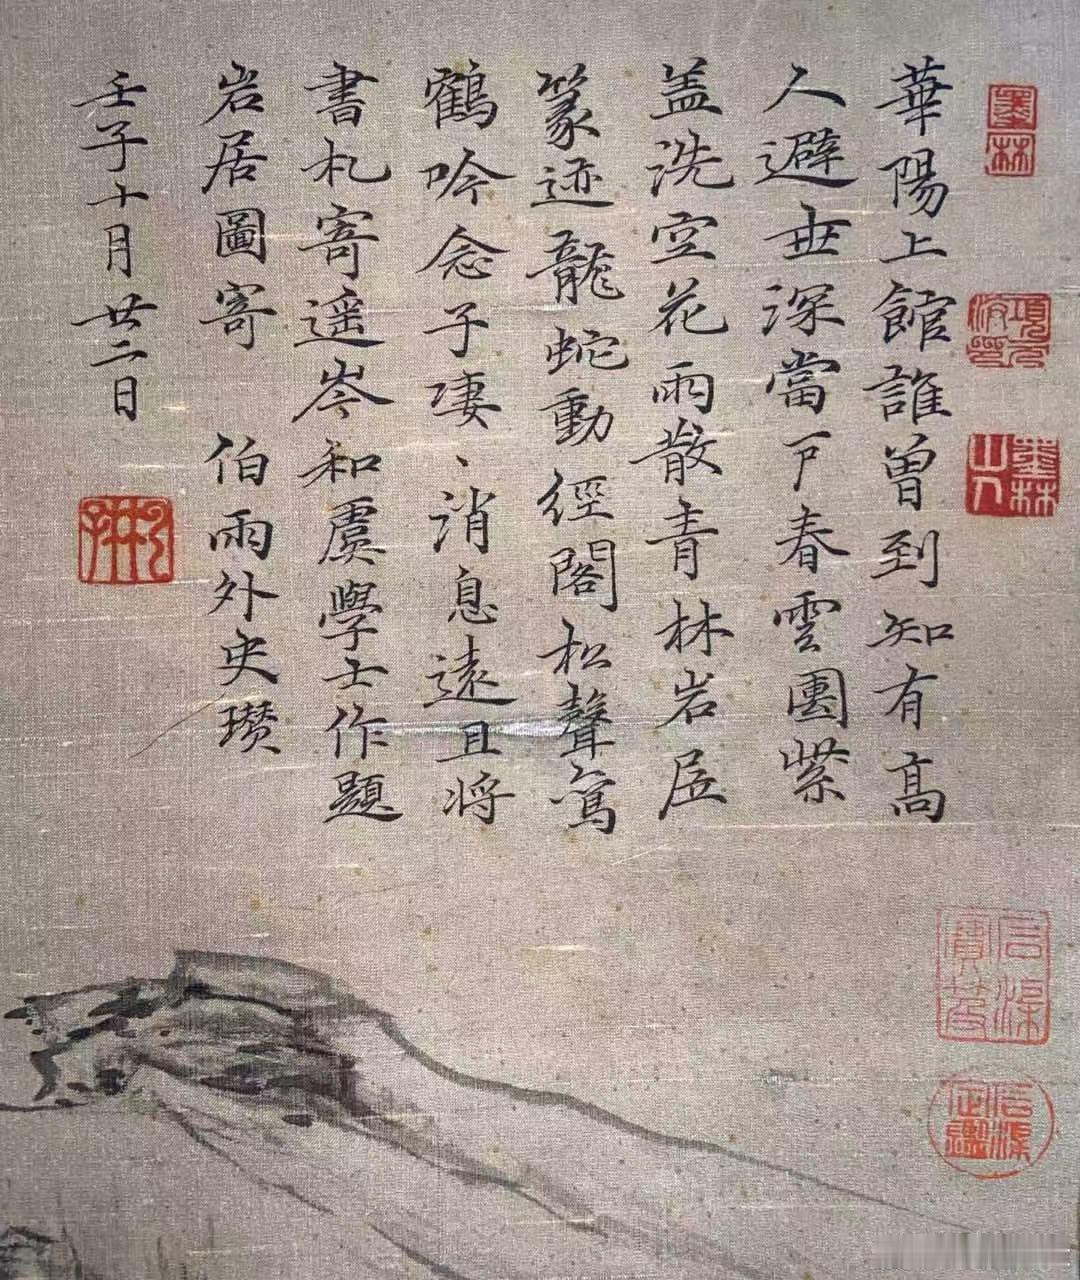 華陽上館誰曾到知有高
人避世深當戶春雲團紫
盖洗空花雨散青林岩扂
篆迹龍蛇動經閣松聲鸞
鶴吟念子凄、消息遠且將
書札寄遥岑和虞學士作題
岩居圖寄 伯雨外史瓚
壬子十月廿二日
墨林
項元汴印
墨林山人